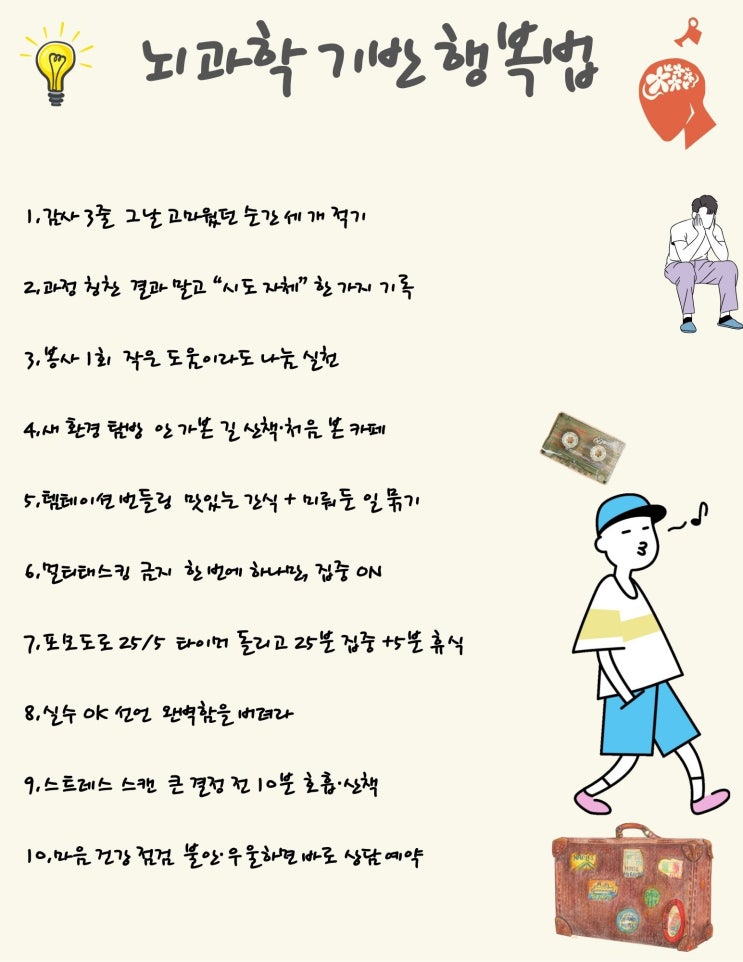 뇌과학 기반 행복법
1.감사 3줄 그날 고마웠던 순간 세 개 적기
2.과정 칭찬 결과 말고 “시도 자체” 한 가지 기록
3.봉사 1회 작은 도움이라도 나눔 실천
4.새 환경 탐방 안 가본 길 산책·처음 본 카페
5.템테이션 번들링 맛있는 간식 + 미뤄둔 일 묶기
6.멀티태스킹 금지 한 번에 하나만, 집중 ON
7.포모도로 25/5 타이머 돌리고 25분 집중 +5분 휴식
8.실수 OK 선언 완벽함을 버려라
9.스트레스 스캔 큰 결정 전 10분 호흡·산책
10.마음 건강 점검 불안·우울하면 바로 상담 예약